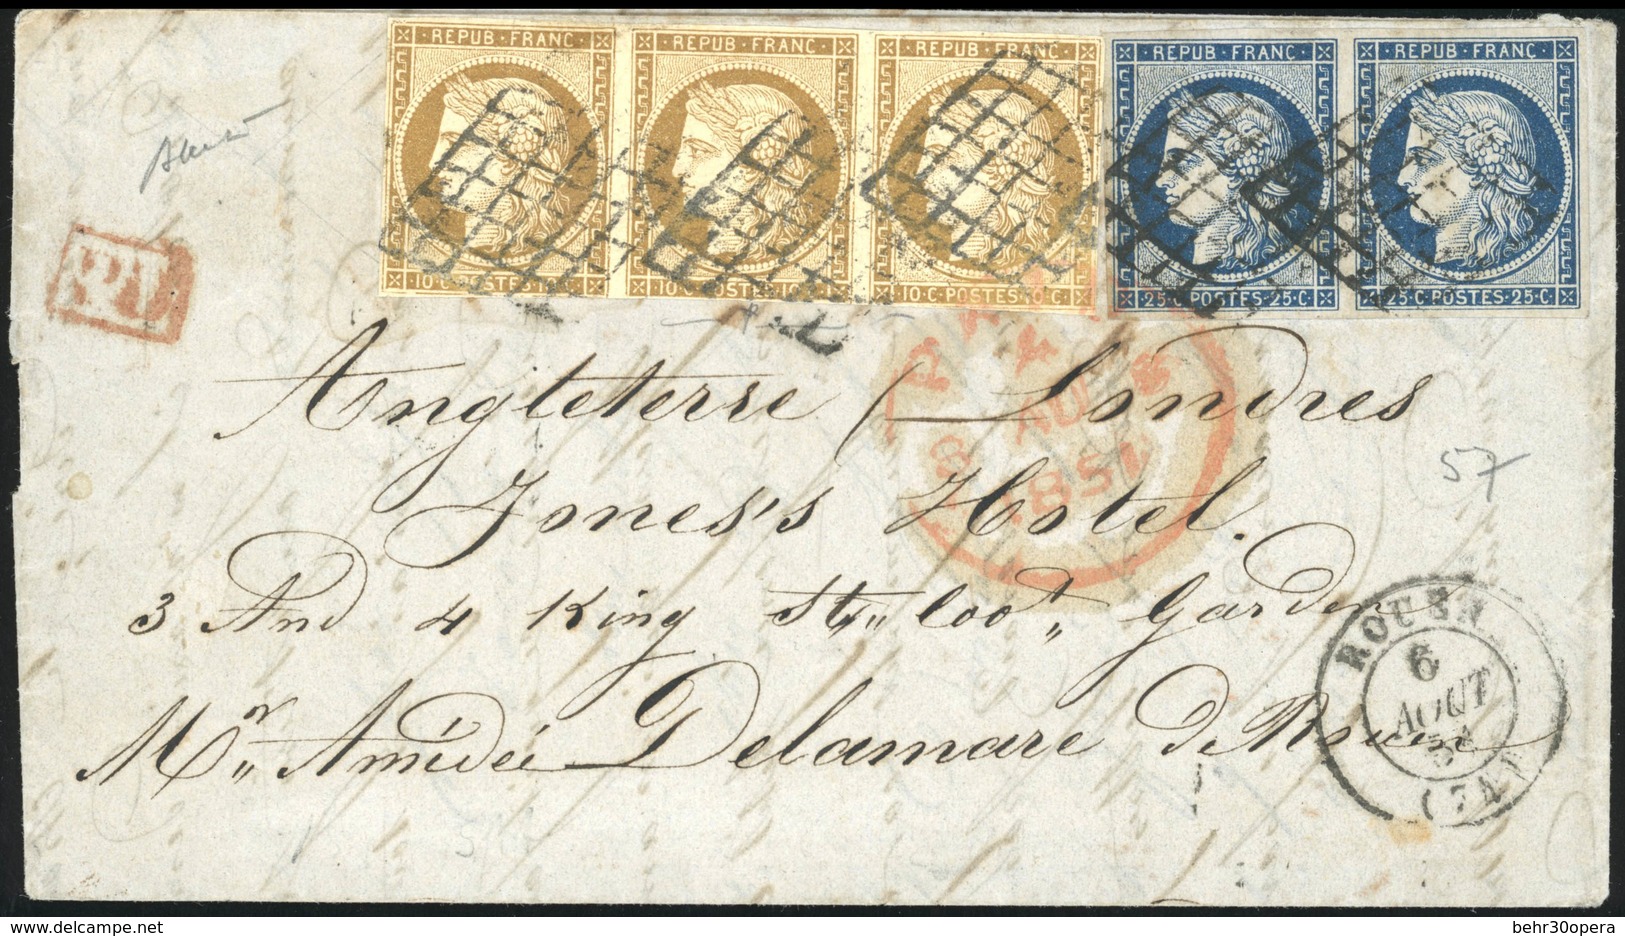 REPUB · FRANC REPUB · FRANC REPUB · FRANC REPUB · FRANC REPUB · FRANC
10·C·POSTES·10·C 10·C·POSTES·10·C 10·C·POSTES·10·C 25·C·POSTES·25·C· 25·C·POSTES·25·C·
P.D.
PAID
AU
1851
Angleterre / Londres
57
Jones's Hotel.
3 And 4 King St,, Coot,, Garden
Mr,, Amédée Delamare de Rouen
ROUEN
6
AOUT
51
(74)
behr30opera